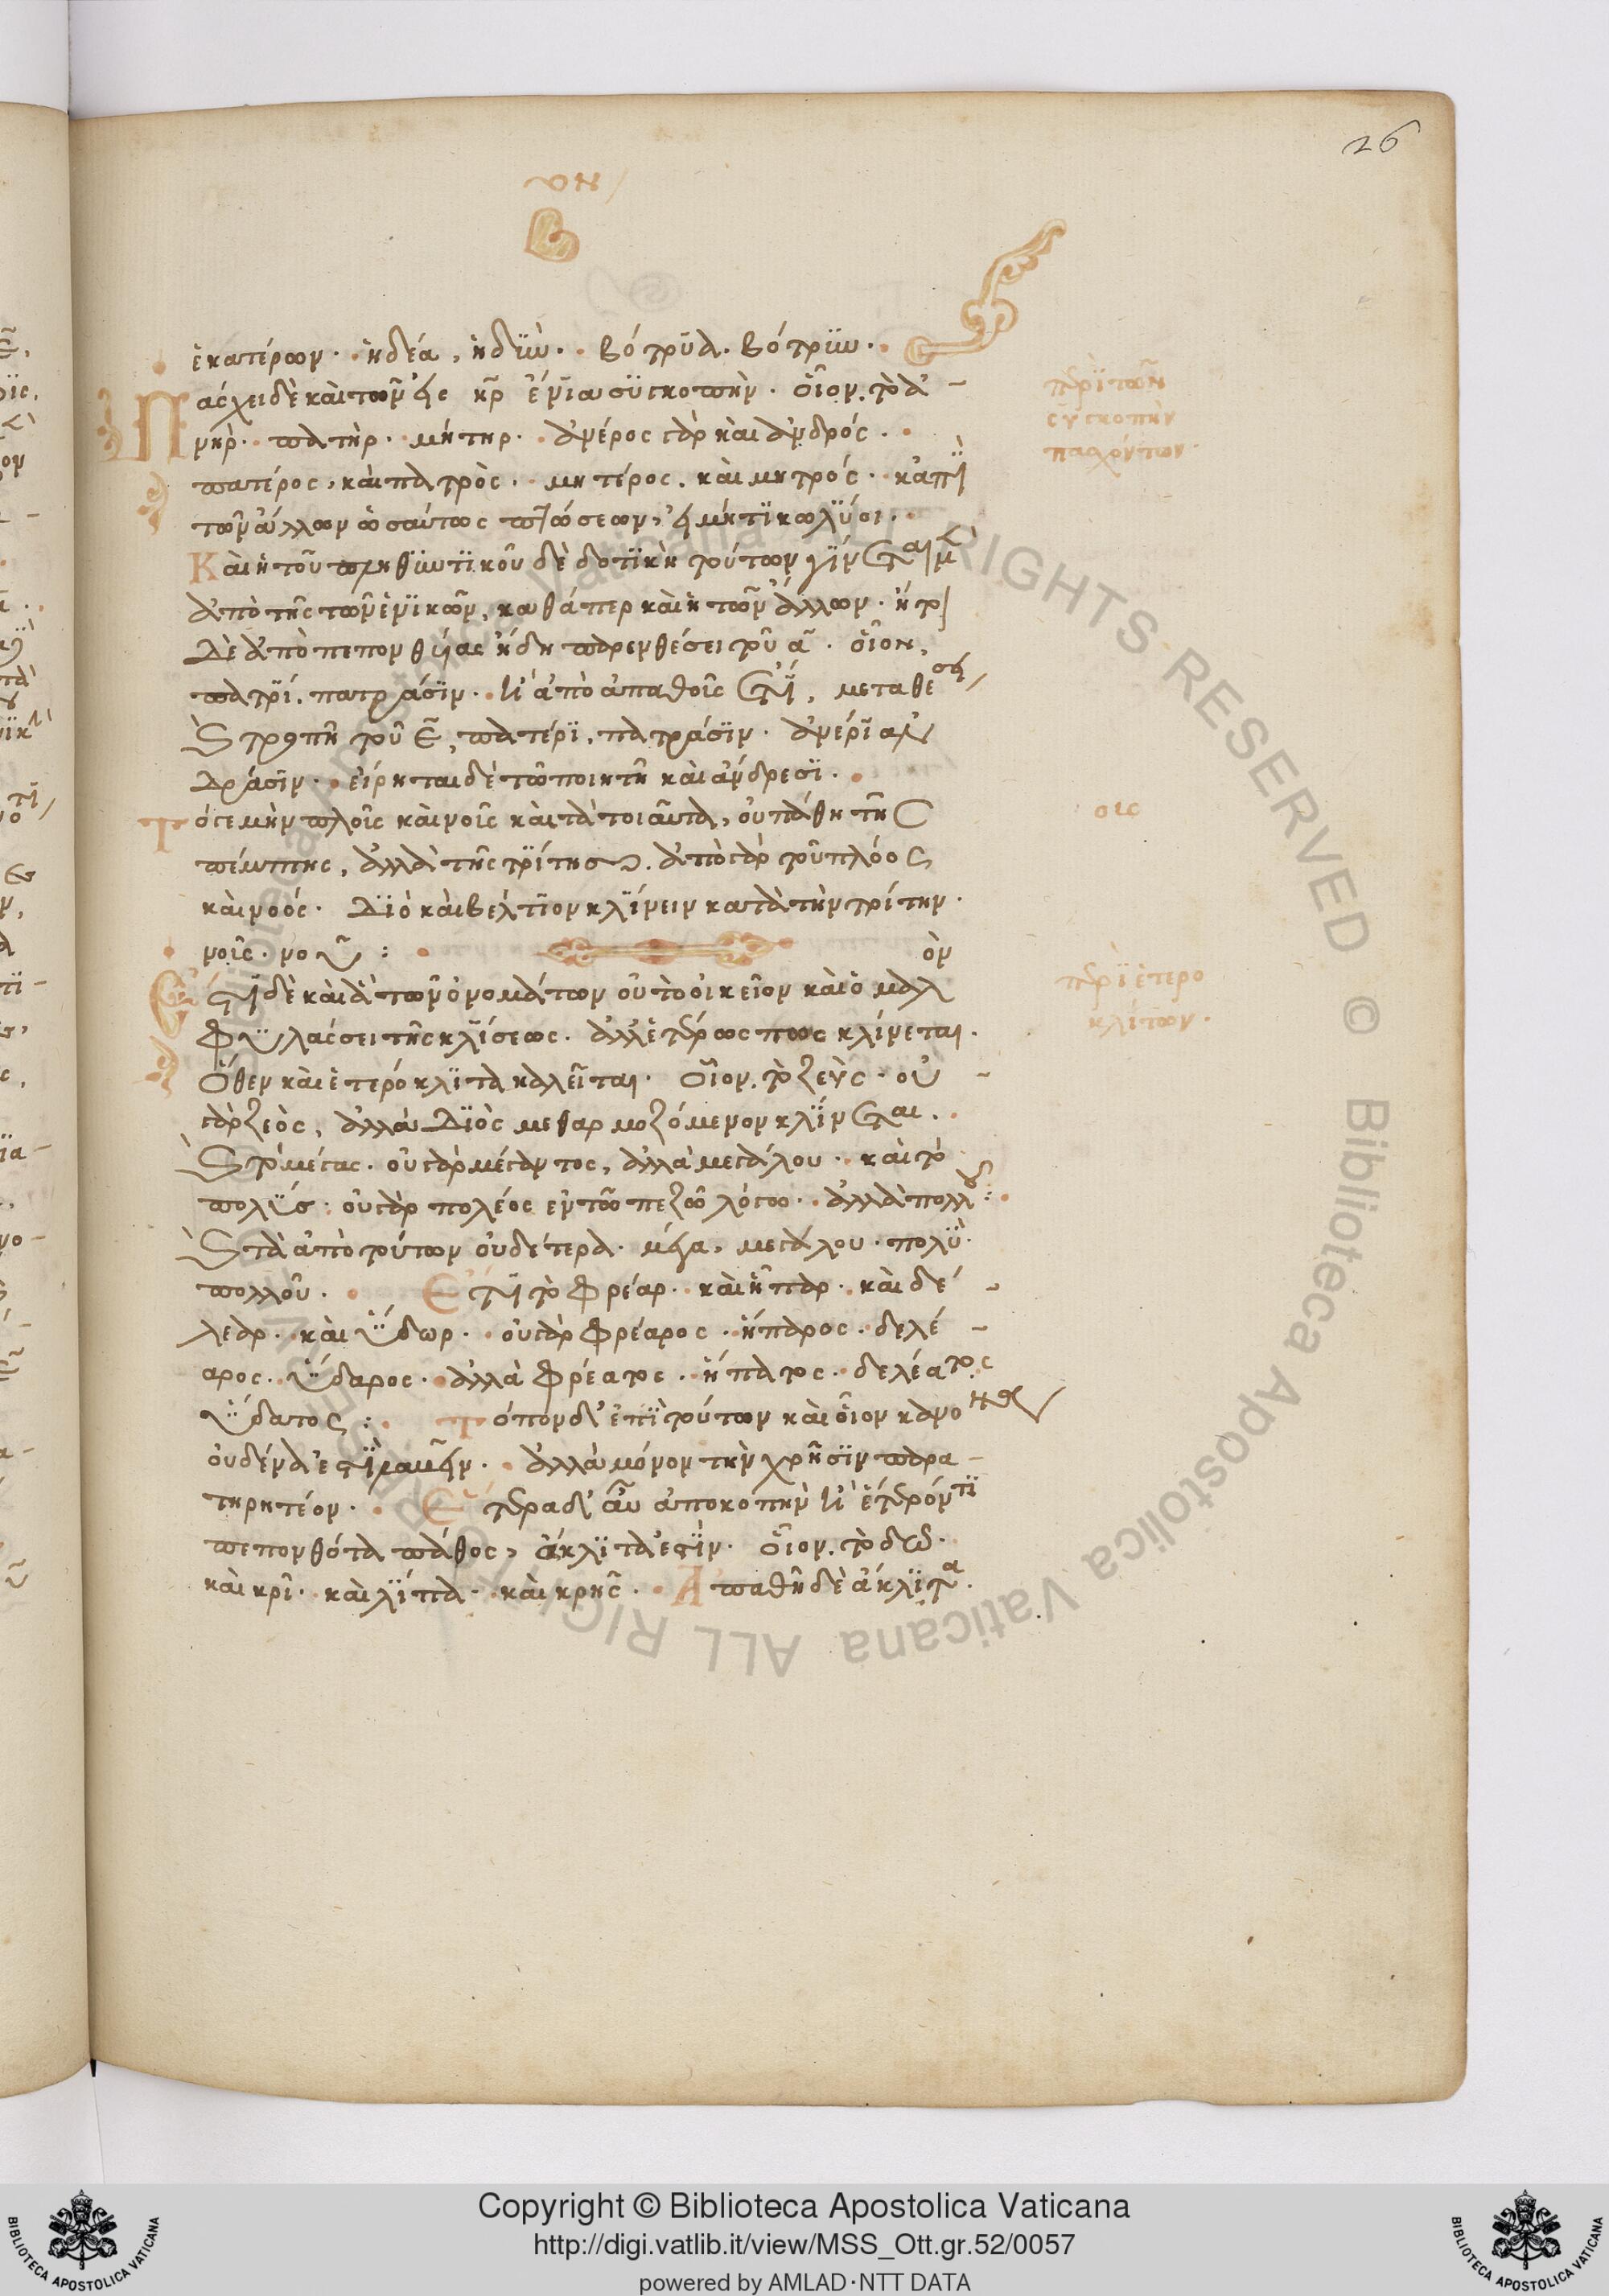 26
ον
Β
ἑκατέρων· ἡδέα, ἡδύω· βότρυα· βότρυω·
Πάσχει δὲ καὶ τῶν εἰς ηρ ἔνια συγκοπήν· οἷον, τὸ ἀ-
νήρ· πατήρ· μήτηρ· ἀνέρος γὰρ καὶ ἀνδρός·
πατέρος, καὶ πατρὸς· μητέρος, καὶ μητρός· κἀπὶ
τῶν ἄλλων ὡσαύτως πτώσεων, εἰ μή τι κωλύοι·
Καὶ ἡ τοῦ πληθυντικοῦ δὲ δοτικὴ τούτων γίνεται μὲν
ἀπὸ τῆς τῶν ἑνικῶν, καθάπερ καὶ ἡ τῶν ἄλλων· ἤτοι
δὲ ἀπὸ πεπονθυίας ἤδη παρενθέσει τοῦ α· οἷον,
πατρί, πατράσιν· ἢ ἀπὸ ἀπαθοῦς ἔτι, μεταθέσει
καὶ τροπῇ τοῦ ε, πατέρι, πατράσιν· ἀνέρι ἀν
δράσιν· εἴρηται δὲ τῷ ποιητῇ καὶ ἄνδρεσι·
Τό γε μὴν πλοῦς καὶ νοῦς καὶ τὰ τοιαῦτα, οὐ πάθη τῆς
πέμπτης, ἀλλὰ τῆς τρίτης· ἀπὸ γὰρ τοῦ πλόος
καὶ νοός· Διὸ καὶ βέλτιον κλίνειν κατὰ τὴν τρίτην·
νοῦς· νοῦ: ὸν
Ἔστι δὲ καὶ ἃ τῶν ὀνομάτων οὐ τὸ οἰκεῖον καὶ ὁμαλ
φυλάσσει τῆς κλίσεως· ἀλλ' ἑτέρως πως κλίνεται·
Ὅθεν καὶ ἑτερόκλιτα καλεῖται· οἷον, τὸ ζεὺς· οὐ-
γὰρ ζεὸς, ἀλλὰ Διὸς μεθαρμοζόμενον κλίνεται·
καὶ τὸ μέγας· οὐ γὰρ μέγαντος, ἀλλὰ μεγάλου· καὶ τὸ
πολύς· οὐ γὰρ πολέος ἐν τῷ πεζῷ λόγῳ· ἀλλὰ πολλοῦ:
καὶ τὰ ἀπὸ τούτων οὐδέτερα· μέγα, μεγάλου· πολὺ·
πολλοῦ· Ἔτι τὸ φρέαρ· καὶ ἧπαρ· καὶ δέ-
λεαρ· καὶ ὕδωρ· οὐ γὰρ φρέαρος· ἥπαρος· δελέ-
αρος· ὕδαρος· ἀλλὰ φρέατος· ἥπατος· δελέατος
ὕδατος: Τόπον δ' ἐπὶ τούτων καὶ οἷον κανο
οὐδένα ἐστι λαβεῖν· ἀλλὰ μόνον τὴν χρῆσιν παρα-
τηρητέον· Ἕτερα δ' αὖ ἀποκοπὴν ἢ ἕτερόν τι
πεπονθότα πάθος, ἄκλιτά ἐστιν· οἷον, τὸ δῶ·
καὶ κρῖ· καὶ λίπα· καὶ κρης· Ἀπαθῆ δὲ ἄκλιτα·
περὶ τῶν
συγκοπὴν
παθόντων·
οις
περὶ ἑτερο
κλίτων·
Copyright © Biblioteca Apostolica Vaticana
http://digi.vatlib.it/view/MSS_Ott.gr.52/0057
powered by AMLAD·NTT DATA
BIBLIOTECA APOSTOLICA VATICANA
BIBLIOTECA APOSTOLICA VATICANA
Biblioteca Apostolica Vaticana ALL RIGHTS RESERVED © Biblioteca Apostolica Vaticana ALL RIGHTS RESERVED ©